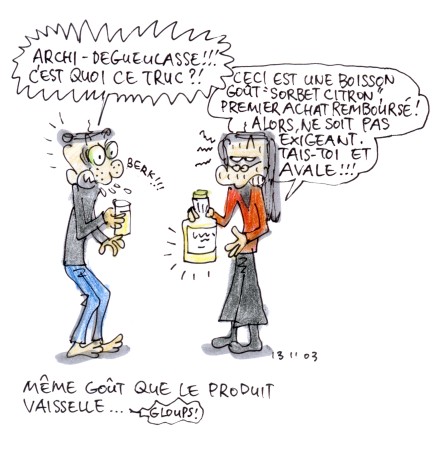 ARCHI-DEGUEULASSE!!!
C'EST QUOI CE TRUC?!
CECI EST UNE BOISSON
GOÛT "SORBET CITRON",
PREMIER ACHAT REMBOURSÉ!
ALORS, NE SOIT PAS
EXIGEANT.
TAIS-TOI ET
AVALE!!!
BERK!!!
13 11 03
MÊME GOÛT QUE LE PRODUIT
VAISSELLE...
GLOUPS!